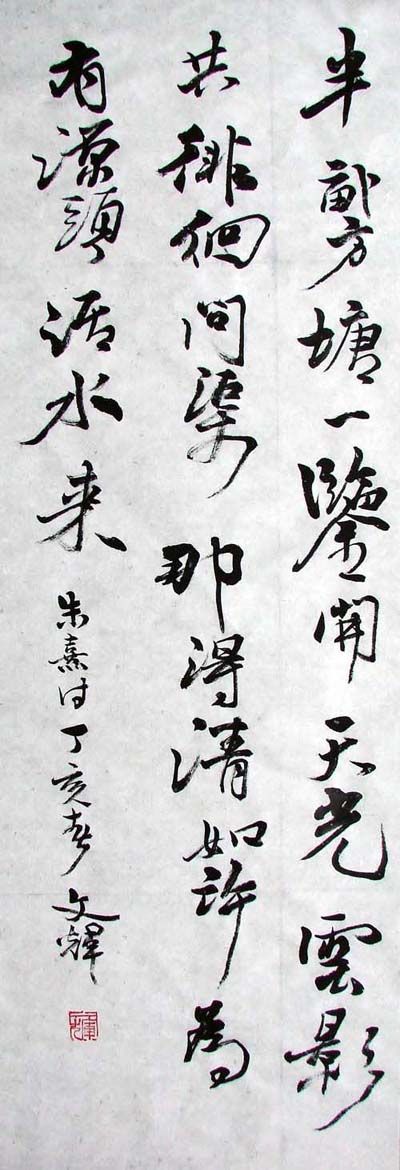 半畝方塘一鑒開天光雲影
共徘徊問渠那得清如許為
有源頭活水来
朱熹诗丁亥春文輝